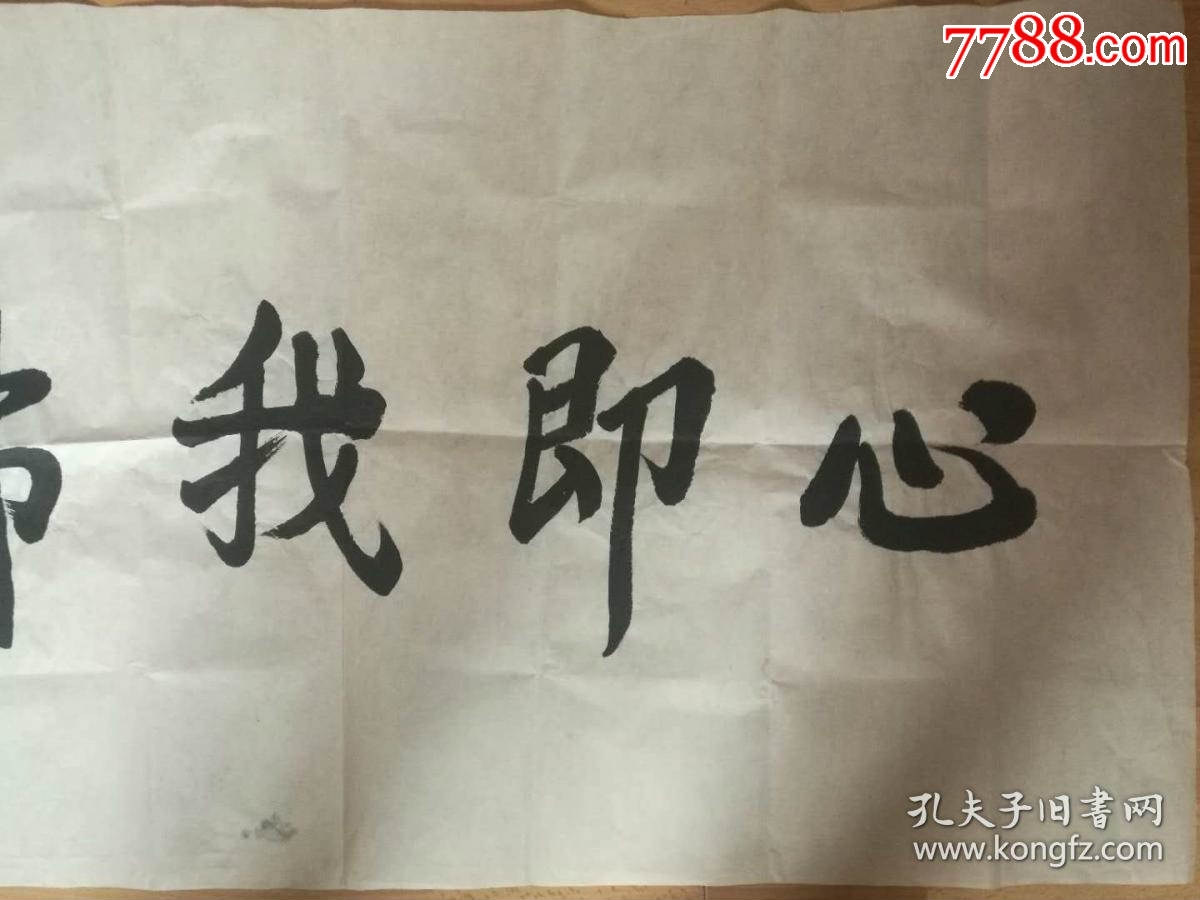 7788.com
心即我
孔夫子旧書网
www.kongfz.com